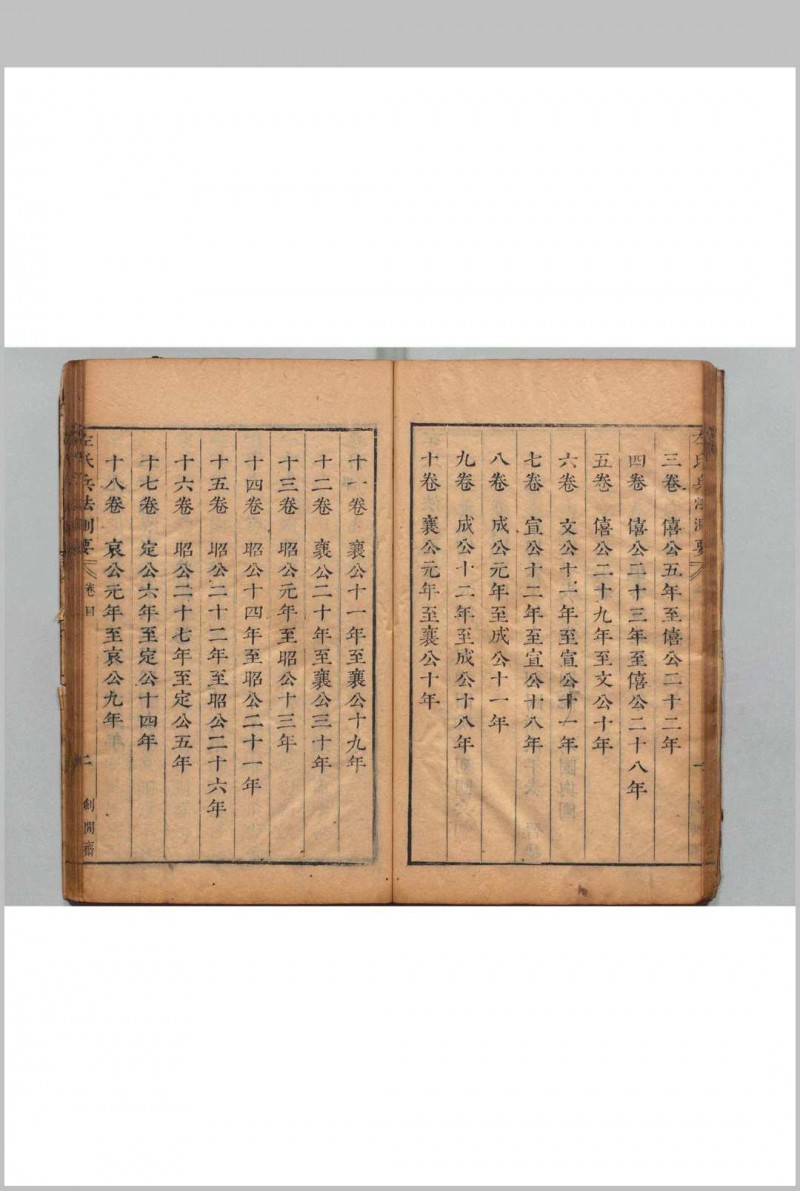 三卷　僖公五年至僖公二十二年
四卷　僖公二十三年至僖公二十八年
五卷　僖公二十九年至文公十年
六卷　文公十一年至宣公十一年
七卷　宣公十二年至宣公十八年
八卷　成公元年至成公十一年
九卷　成公十二年至成公十八年
十卷　襄公元年至襄公十年
十一卷　襄公十一年至襄公十九年
十二卷　襄公二十年至襄公三十年
十三卷　昭公元年至昭公十三年
十四卷　昭公十四年至昭公二十一年
十五卷　昭公二十二年至昭公二十六年
十六卷　昭公二十七年至定公五年
十七卷　定公六年至定公十四年
十八卷　哀公元年至哀公九年
左氏兵法測要　卷目　二　劍閒齋